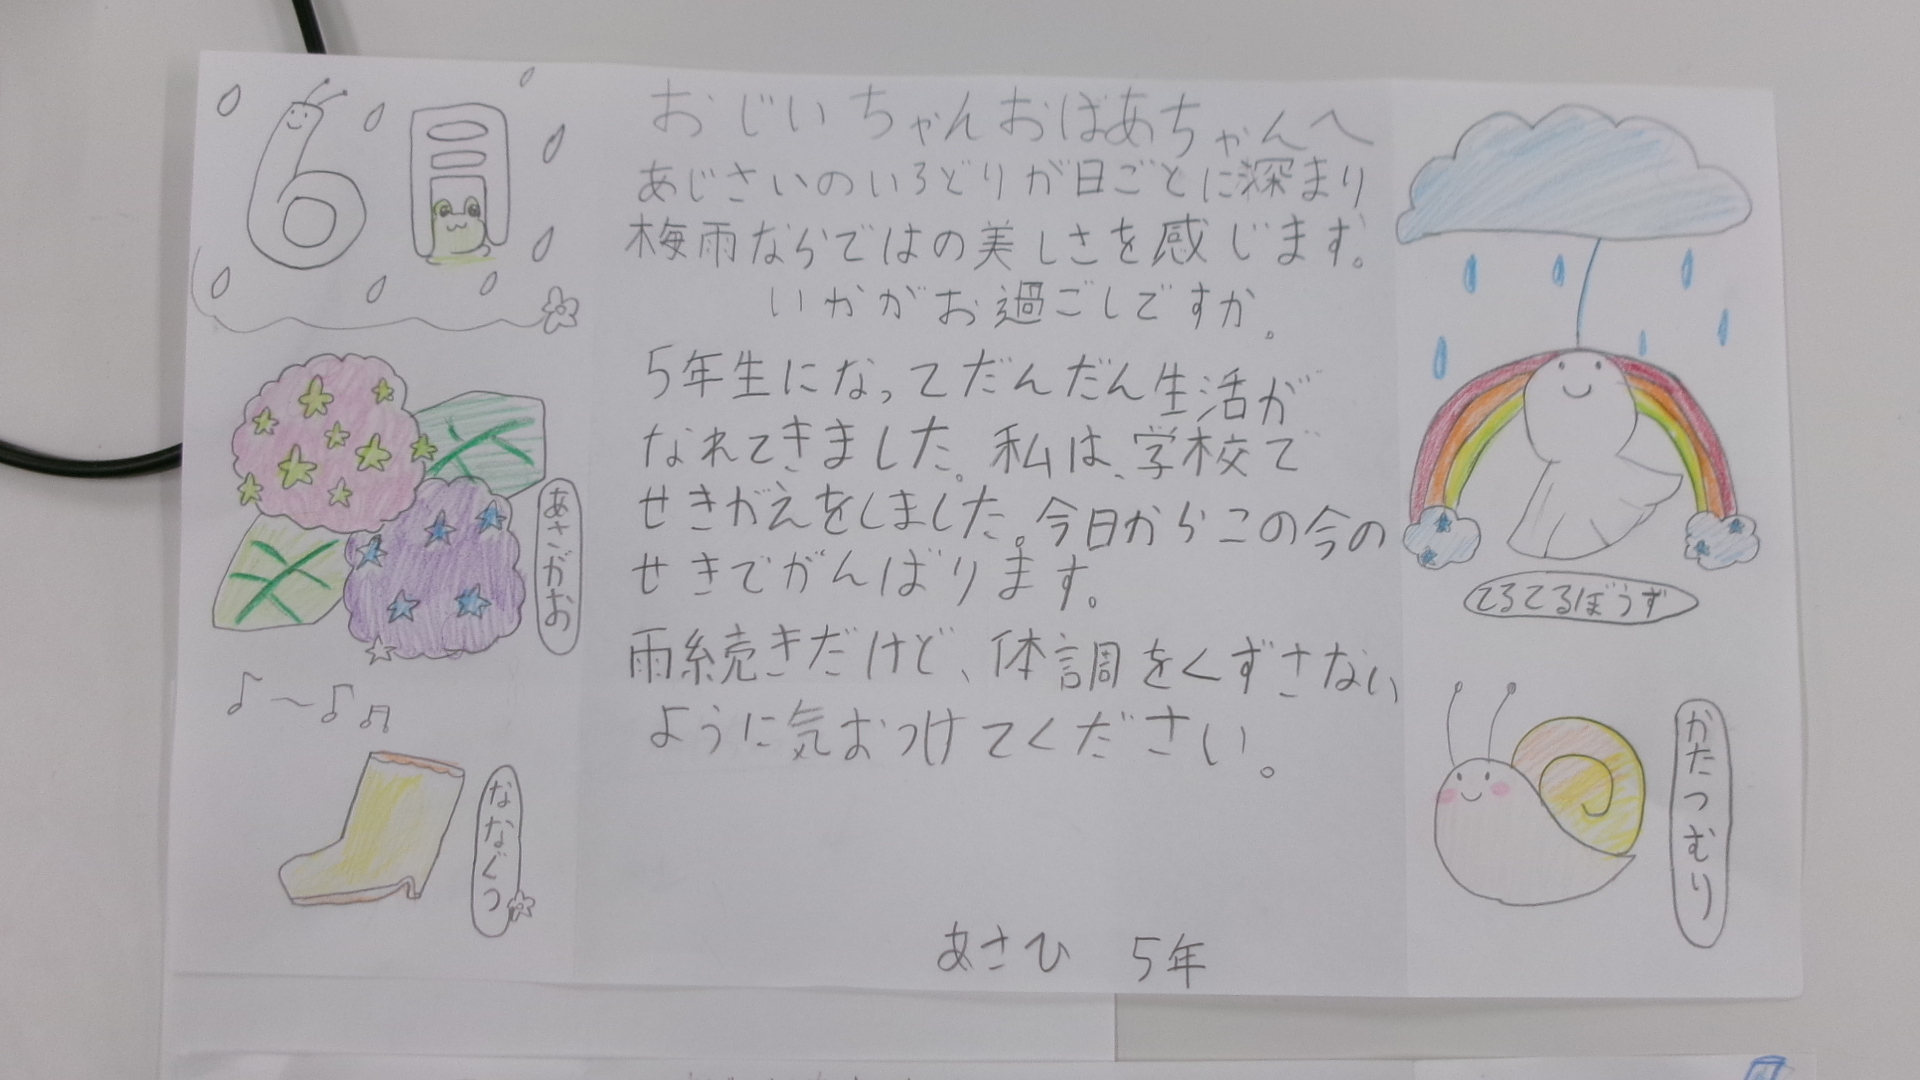 6月
おじいちゃんおばあちゃんへ
あじさいのいろどりが日ごとに深まり
梅雨ならではの美しさを感じます。
いかがお過ごしですか。
5年生になってだんだん生活が
なれてきました。私は、学校で
せきがえをしました。今日からこの今の
せきでがんばります。
雨続きだけど、体調をくずさない
ように気おつけてください。
あさひ 5年
あさがお
ななぐつ
てるてるぼうず
かたつむり